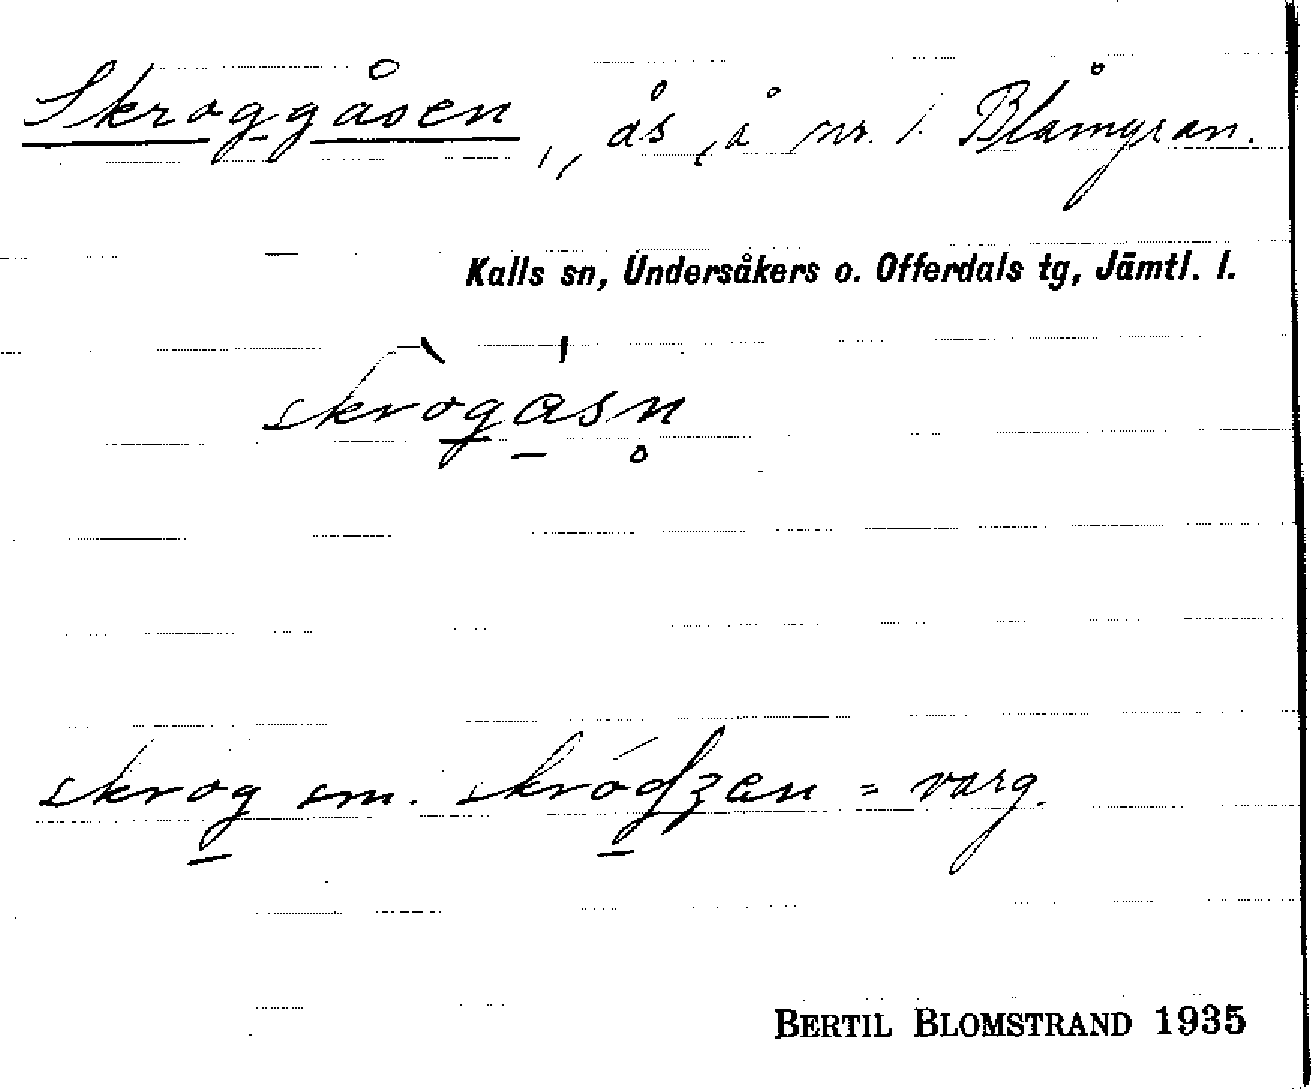 Skroggåsen, ås å nr. 1. Blåmyran.
Kalls sn, Undersåkers o. Offerdals tg, Jämtl. l.
skrògásn̥
skrog sm. skródʒen = varg.
BERTIL BLOMSTRAND 1935